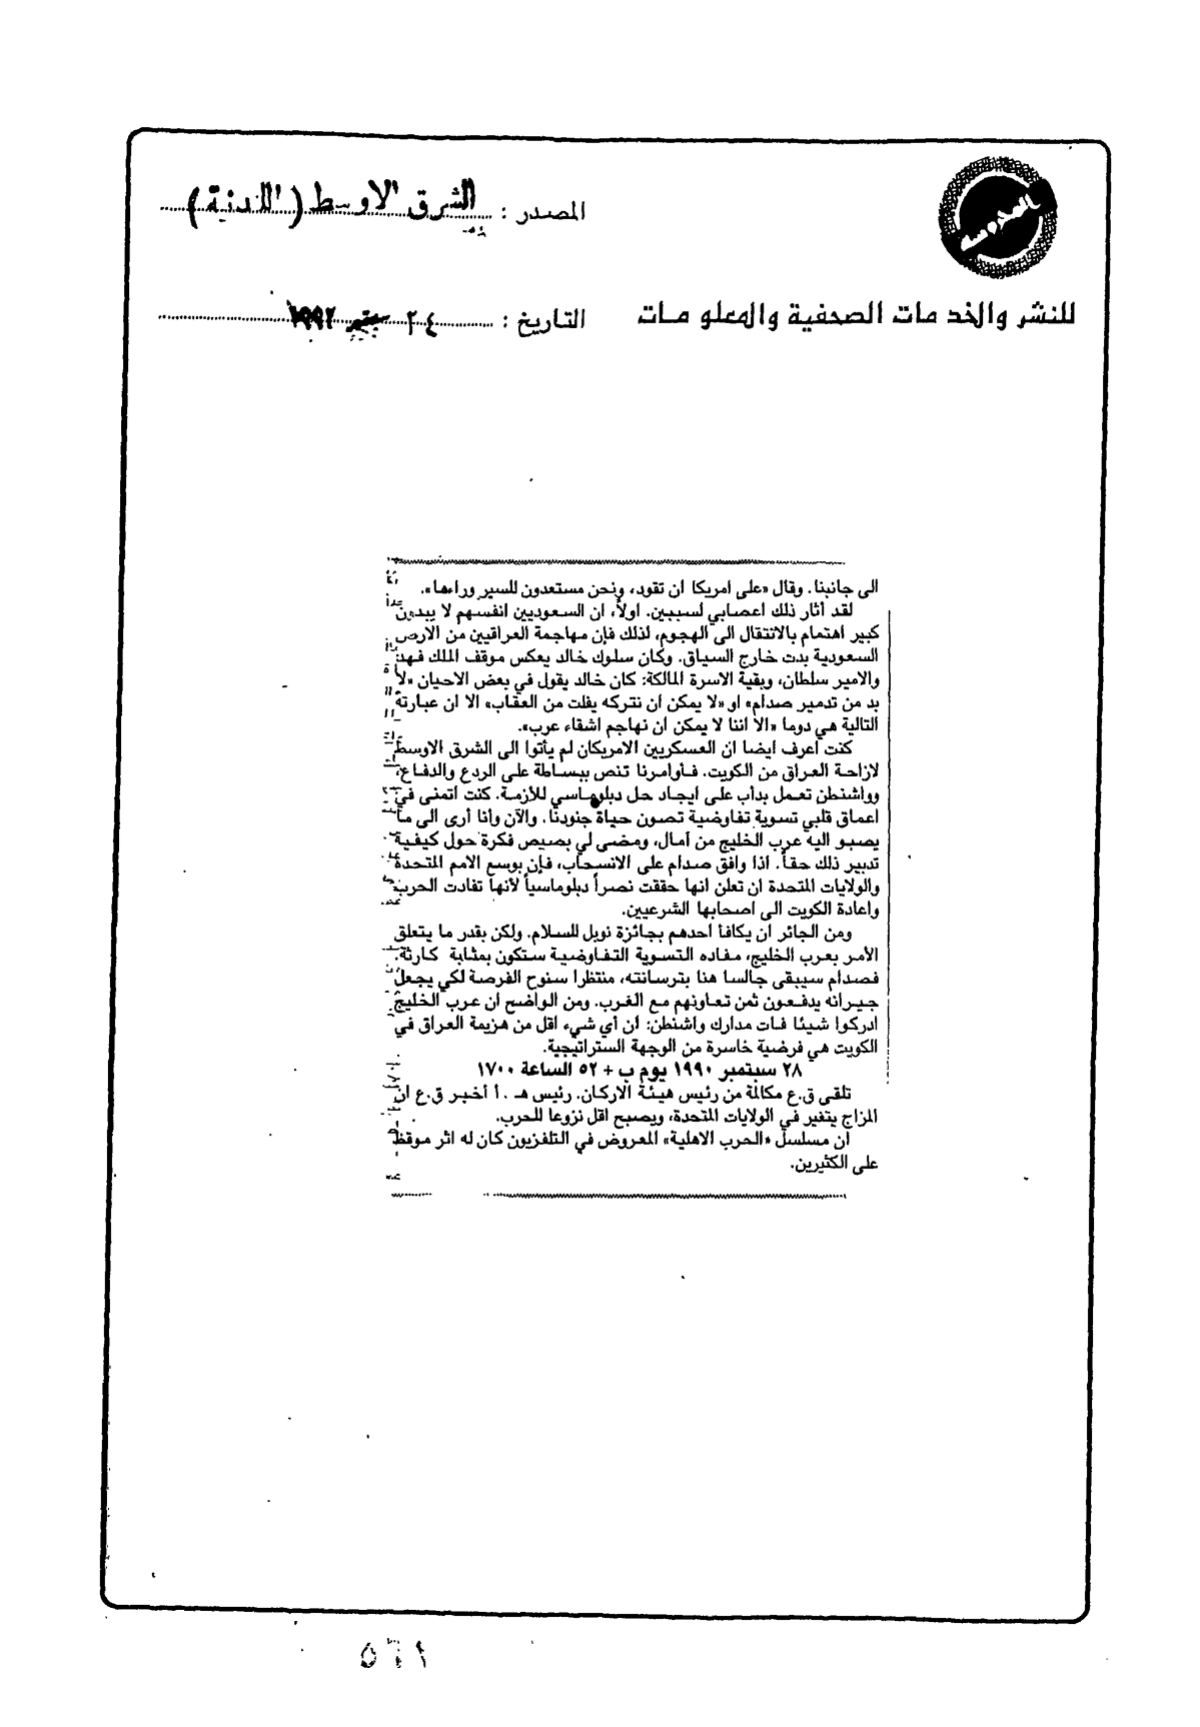 المحروسة
المصدر : الشرق الاوسط (اللندنية)
للنشر والخدمات الصحفية والمعلومات
التاريخ : ٢٤ سبتمبر ١٩٩٢
الى جانبنا. وقال «على امريكا ان تقود، ونحن مستعدون للسير وراءها».
لقد أثار ذلك اعصابي لسببين. اولاً، ان السعوديين انفسهم لا يبدون
كبير اهتمام بالانتقال الى الهجوم، لذلك فإن مهاجمة العراقيين من الارض
السعودية بدت خارج السياق. وكان سلوك خالد يعكس موقف الملك فهد
والامير سلطان، وبقية الاسرة المالكة: كان خالد يقول في بعض الاحيان «لا
بد من تدمير صدام» او «لا يمكن ان نتركه يفلت من العقاب» الا ان عبارته
التالية هي دوما «الا اننا لا يمكن ان نهاجم اشقاء عرب».
كنت اعرف ايضا ان العسكريين الامريكان لم يأتوا الى الشرق الاوسط
لازاحة العراق من الكويت. فأوامرنا تنص ببساطة على الردع والدفاع،
وواشنطن تعمل بدأب على ايجاد حل دبلوماسي للأزمة. كنت اتمنى في
اعماق قلبي تسوية تفاوضية تصون حياة جنودنا. والآن وأنا أرى الى ما
يصبو اليه عرب الخليج من آمال، ومضى لي بصيص فكرة حول كيفية
تدبير ذلك حقاً. اذا وافق صدام على الانسحاب، فإن بوسع الامم المتحدة
والولايات المتحدة ان تعلن انها حققت نصراً دبلوماسياً لأنها تفادت الحرب
واعادة الكويت الى اصحابها الشرعيين.
ومن الجائز ان يكافأ أحدهم بجائزة نوبل للسلام. ولكن بقدر ما يتعلق
الأمر بعرب الخليج، مفاده التسوية التفاوضية ستكون بمثابة كارثة.
فصدام سيبقى جالسا هنا بترسانته، منتظرا سنوح الفرصة لكي يجعل
جيرانه يدفعون ثمن تعاونهم مع الغرب. ومن الواضح ان عرب الخليج
ادركوا شيئا فات مدارك واشنطن: ان أي شيء اقل من هزيمة العراق في
الكويت هي فرضية خاسرة من الوجهة الستراتيجية.
٢٨ سبتمبر ١٩٩٠ يوم ب + ٥٢ الساعة ١٧٠٠
تلقى ق.ع مكالمة من رئيس هيئة الاركان. رئيس هـ . أ أخبر ق.ع ان
المزاج يتغير في الولايات المتحدة، ويصبح اقل نزوعا للحرب.
ان مسلسل «الحرب الاهلية» المعروض في التلفزيون كان له اثر موقظ
على الكثيرين.
٥٦١